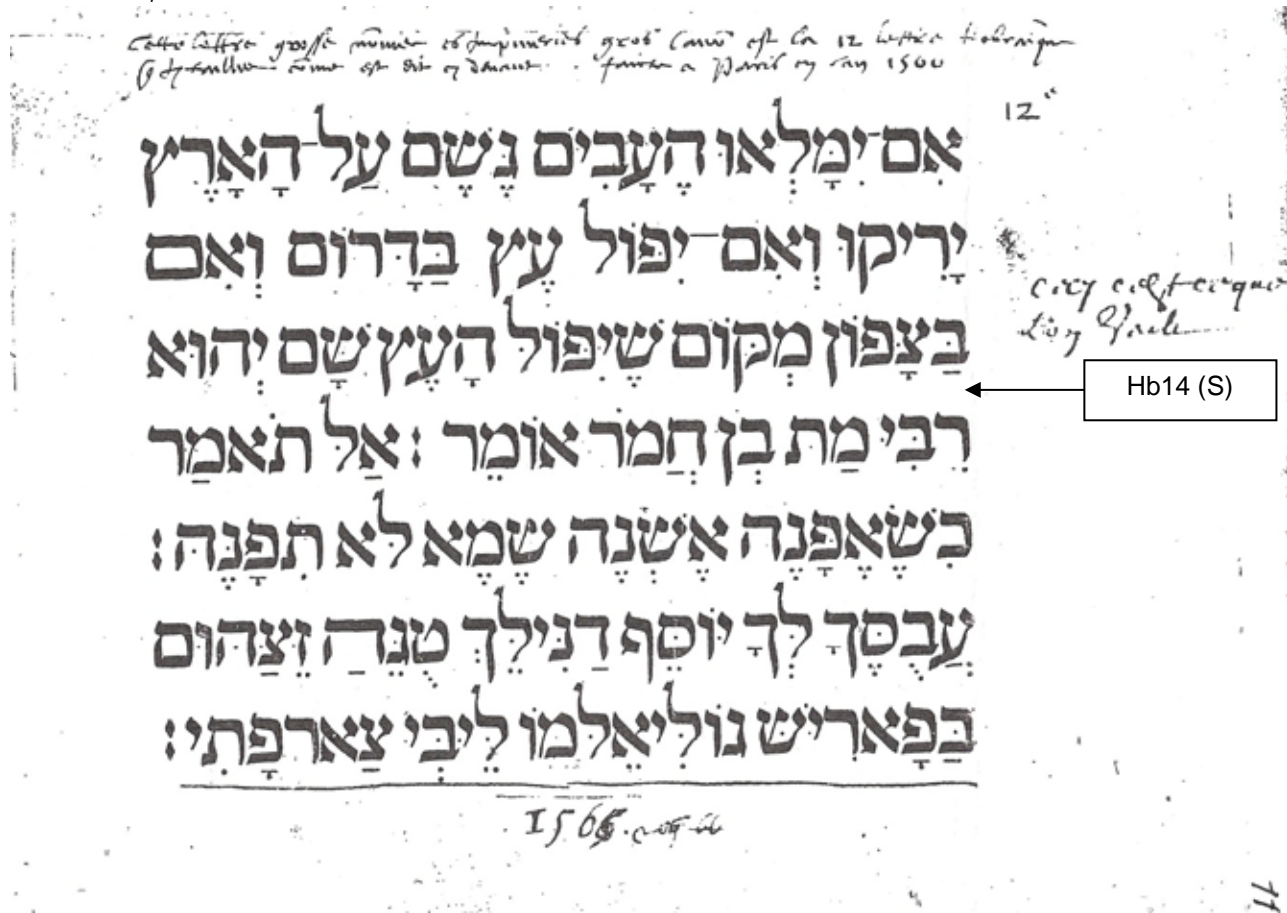 Cette lettre grosse nommee es Imprimeries gros Canon est la 12 lettre hebraique
comme est dit cy devant. faicte a Paris en l'an 1560
12ᵉ
אִם־יִמָּלְאוּ הֶעָבִים גֶּשֶׁם עַל־הָאָרֶץ
יָרִיקוּ וְאִם־יִפּוֹל עֵץ בַּדָּרוֹם וְאִם
בַּצָּפוֹן מְקוֹם שֶׁיִּפּוֹל הָעֵץ שָׁם יְהוּא
Hb14 (S)
רִבִּי מַת בְּן חֲמֹר אוֹמֵר : אַל תֹּאמַר
כִּשֶׁאֶפָּנֶה אֶשְׁנֶה שֶׁמֶא לֹא תִּפָּנֶה :
עֲבֻסֶךָ לְךָ יוֹסֵף דַנִּילֵךְ טֻנֵּהַ זֵצַּהוּם
בַּפָּארִישׁ גוֹלִיאֵלמוֹ לֵיבְּי צַארפָתִי :
11